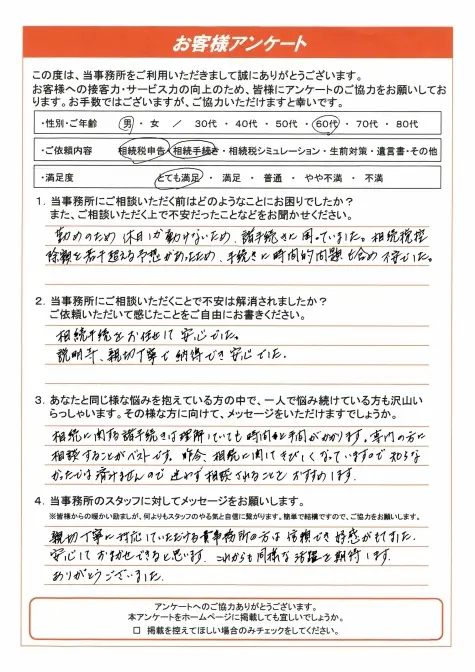 お客様アンケート
この度は、当事務所をご利用いただきまして誠にありがとうございます。
お客様への接客力・サービス力の向上のため、皆様にアンケートのご協力をお願いしてお
ります。お手数ではございますが、ご協力いただけますと幸いです。
・性別・ご年齢 男 ・ 女 ／ 30代 ・ 40代 ・ 50代 ・ 60代 ・ 70代 ・ 80代
・ご依頼内容 相続税申告・相続手続き・相続税シミュレーション・生前対策・遺言書・その他
・満足度 とても満足 ・ 満足 ・ 普通 ・ やや不満 ・ 不満
1．当事務所にご相談いただく前はどのようなことにお困りでしたか？
また、ご相談いただく上で不安だったことなどをお聞かせください。
勤めのため 休日しか動けないため、諸手続きに困っていました。相続税控
除額を若干超える予想があったため、手続きに時間的問題も含め不安でした。
2．当事務所にご相談いただくことで不安は解消されましたか？
ご依頼いただいて感じたことをご自由にお書きください。
相続手続をお任せして安心でした。
説明等、親切丁寧で納得でき安心でした。
3．あなたと同じ様な悩みを抱えている方の中で、一人で悩み続けている方も沢山い
らっしゃいます。その様な方に向けて、メッセージをいただけますでしょうか。
相続に関する諸手続きは理解していても時間と手間がかかります。専門の方に
相談することがベストです。昨今、相続に関してきびしくなっていますので知らな
かったでは済けませんので迷わず相談されることをおすすめします。
4．当事務所のスタッフに対してメッセージをお願いします。
※皆様からの暖かい励ましが、何よりもスタッフのやる気と自信に繋がります。簡単で結構ですので、ご協力をお願いします。
親切丁寧に対応していただける貴事務所の方は信頼でき好感がもてました。
安心しておまかせできると思います。これからも同様な活躍を期待します。
ありがとうございました。
アンケートへのご協力ありがとうございます。
本アンケートをホームページに掲載しても宜しいでしょうか。
□ 掲載を控えてほしい場合のみチェックをしてください。